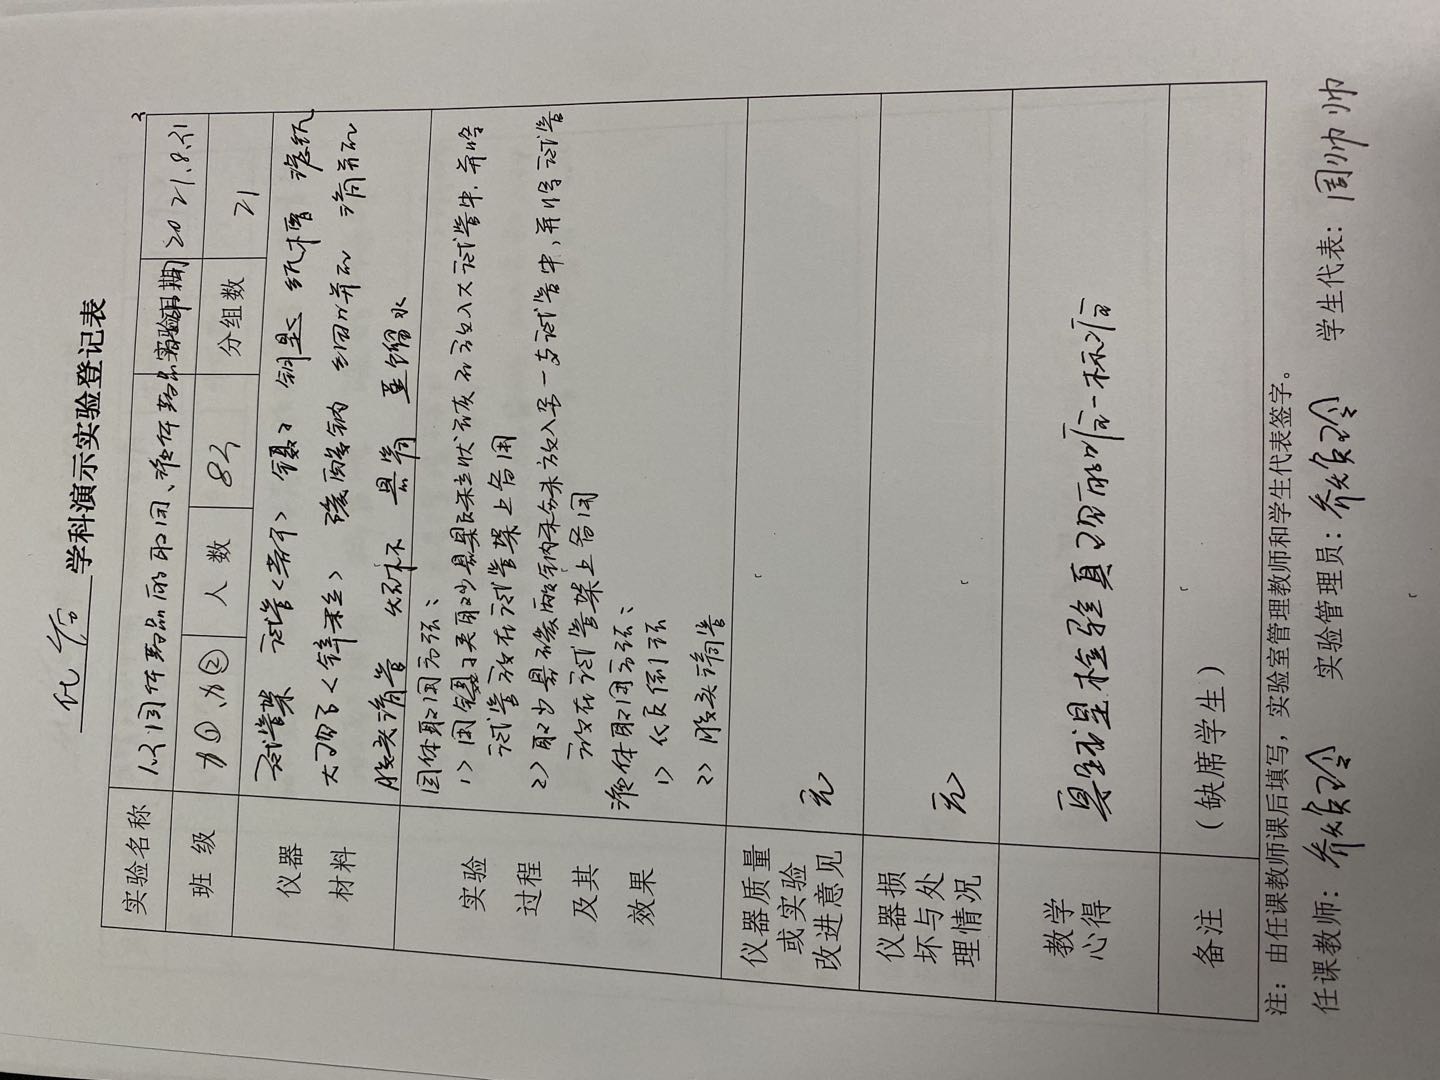 化学 学科演示实验登记表
实验名称 固体药品的取用、液体药品 实验日期 2021.8.31
班级 九①、九② 人数 83 分组数 21
仪器材料 试管架 试管<若干> 镊子 钥匙 纸槽 滤纸
大理石<锌粒> 碳酸钠 细口瓶 滴瓶
胶头滴管 烧杯 量筒 蒸馏水
实验过程及其效果
固体取用方法:
1> 用镊子夹取少量块状 放入试管中,并将
试管放在试管架上备用
2> 取少量碳酸钠粉末放入另一支试管中,并将试管
放在试管架上备用
液体取用方法:
1> 倾倒法
2> 胶头滴管
仪器质量或实验改进意见 无
仪器损坏与处理情况 无
教学心得 实践是检验真理的唯一标准
备注 (缺席学生)
注:由任课教师课后填写,实验室管理教师和学生代表签字。
任课教师: 实验管理员: 学生代表:周帅帅